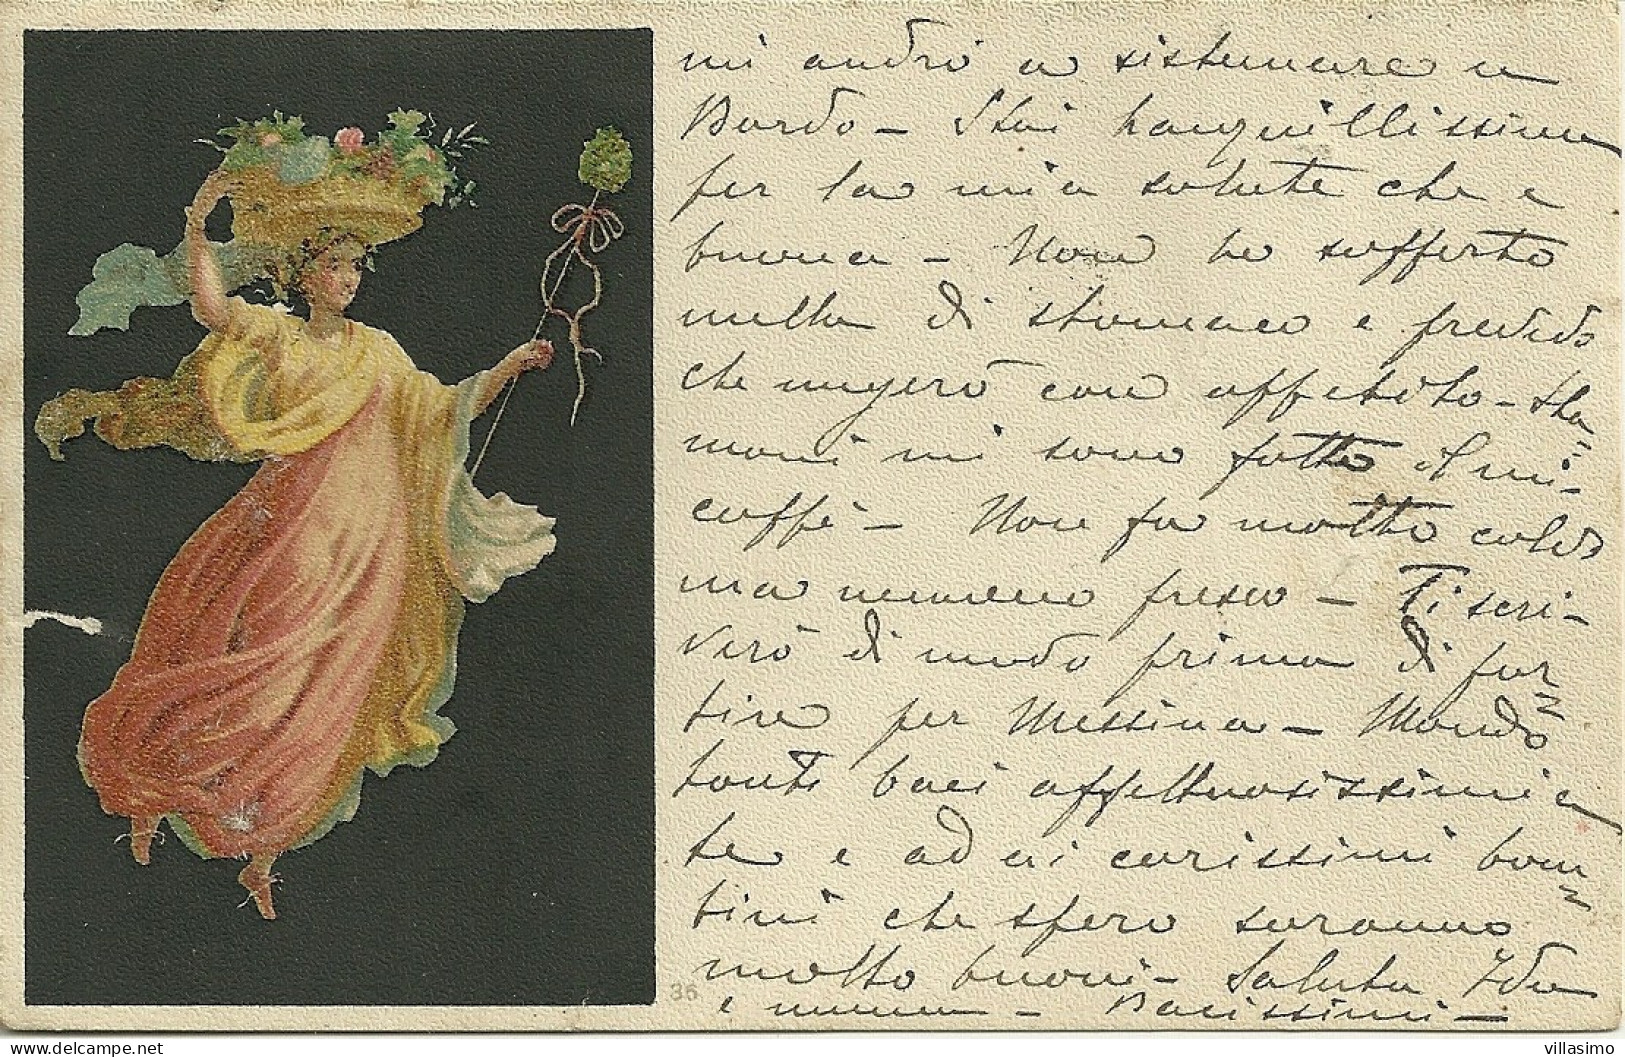 mi andrò a sistemare a
Bordo - Stai tranquillissima
per la mia salute che è
buona - Non ho sofferto
nulla di stomaco e prevedo
che mangerò con appetito - Sta=
mani mi sono fatto il mi-
caffè - Non fa molto caldo
ma nemmeno fresco - Ti scri-
verò di modo prima di par=
tire per Messina - Mando
tanti baci affettuosissimi a
te e ad ai carissimi bam=
bini che spero saranno
molto buoni - Saluta Ida
e mamma - Bacissimi -
36
villasimo